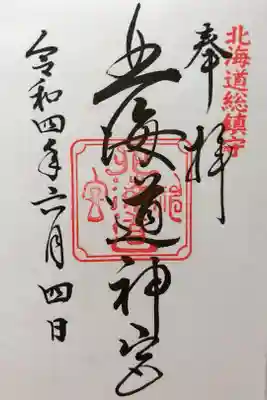 北海道総鎮守
奉拝
北海道神宮
令和四年六月四日